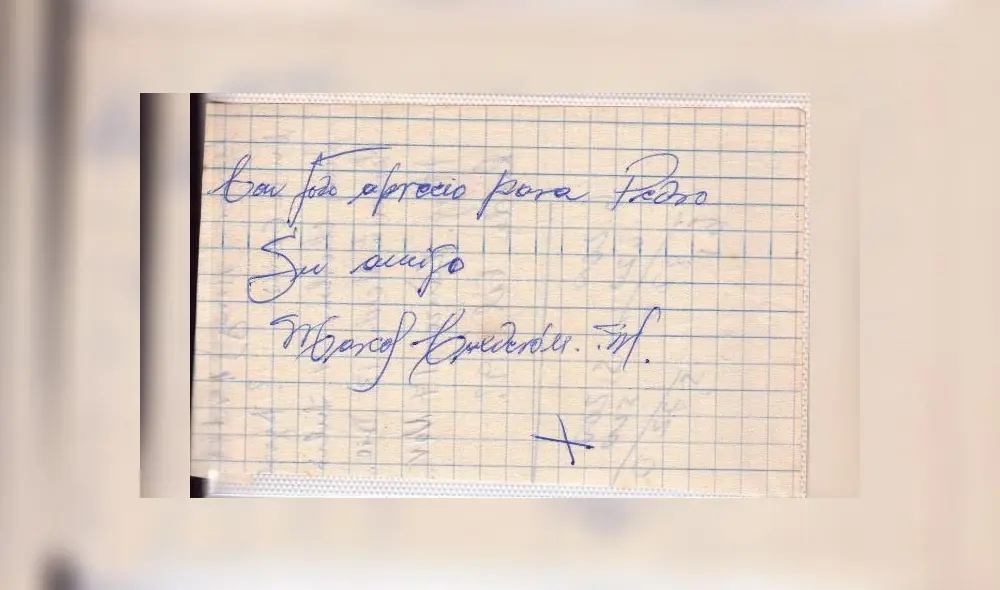 Con todo aprecio para Pedro
Su amigo
Marcos Calderón. M.